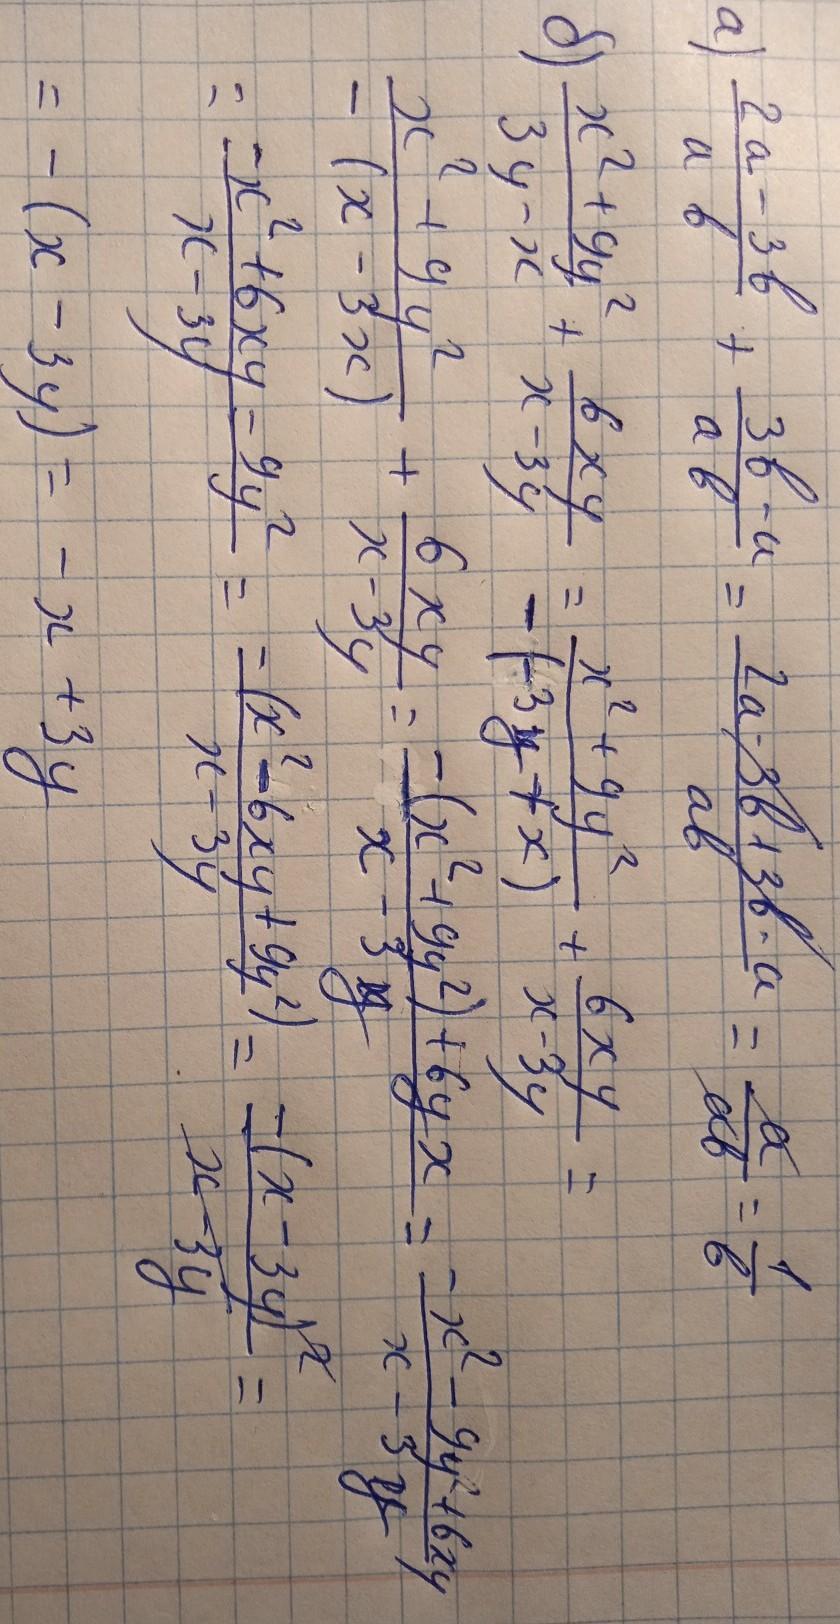 а) (2a - 3b)/(ab) + (3b - a)/(ab) = (2a - 3b + 3b - a)/(ab) = a/(ab) = 1/b
б) (x² + 9y²)/(3y - x) + (6xy)/(x - 3y) = (x² + 9y²)/(-(-3y + x)) + (6xy)/(x - 3y) =
(x² + 9y²)/(-(x - 3x)) + (6xy)/(x - 3y) = (-(x² + 9y²) + 6yx)/(x - 3y) = (-x² - 9y² + 6xy)/(x - 3y)
= (-x² + 6xy - 9y²)/(x - 3y) = (-(x² - 6xy + 9y²))/(x - 3y) = (-(x - 3y)²)/(x - 3y) =
= -(x - 3y) = -x + 3y